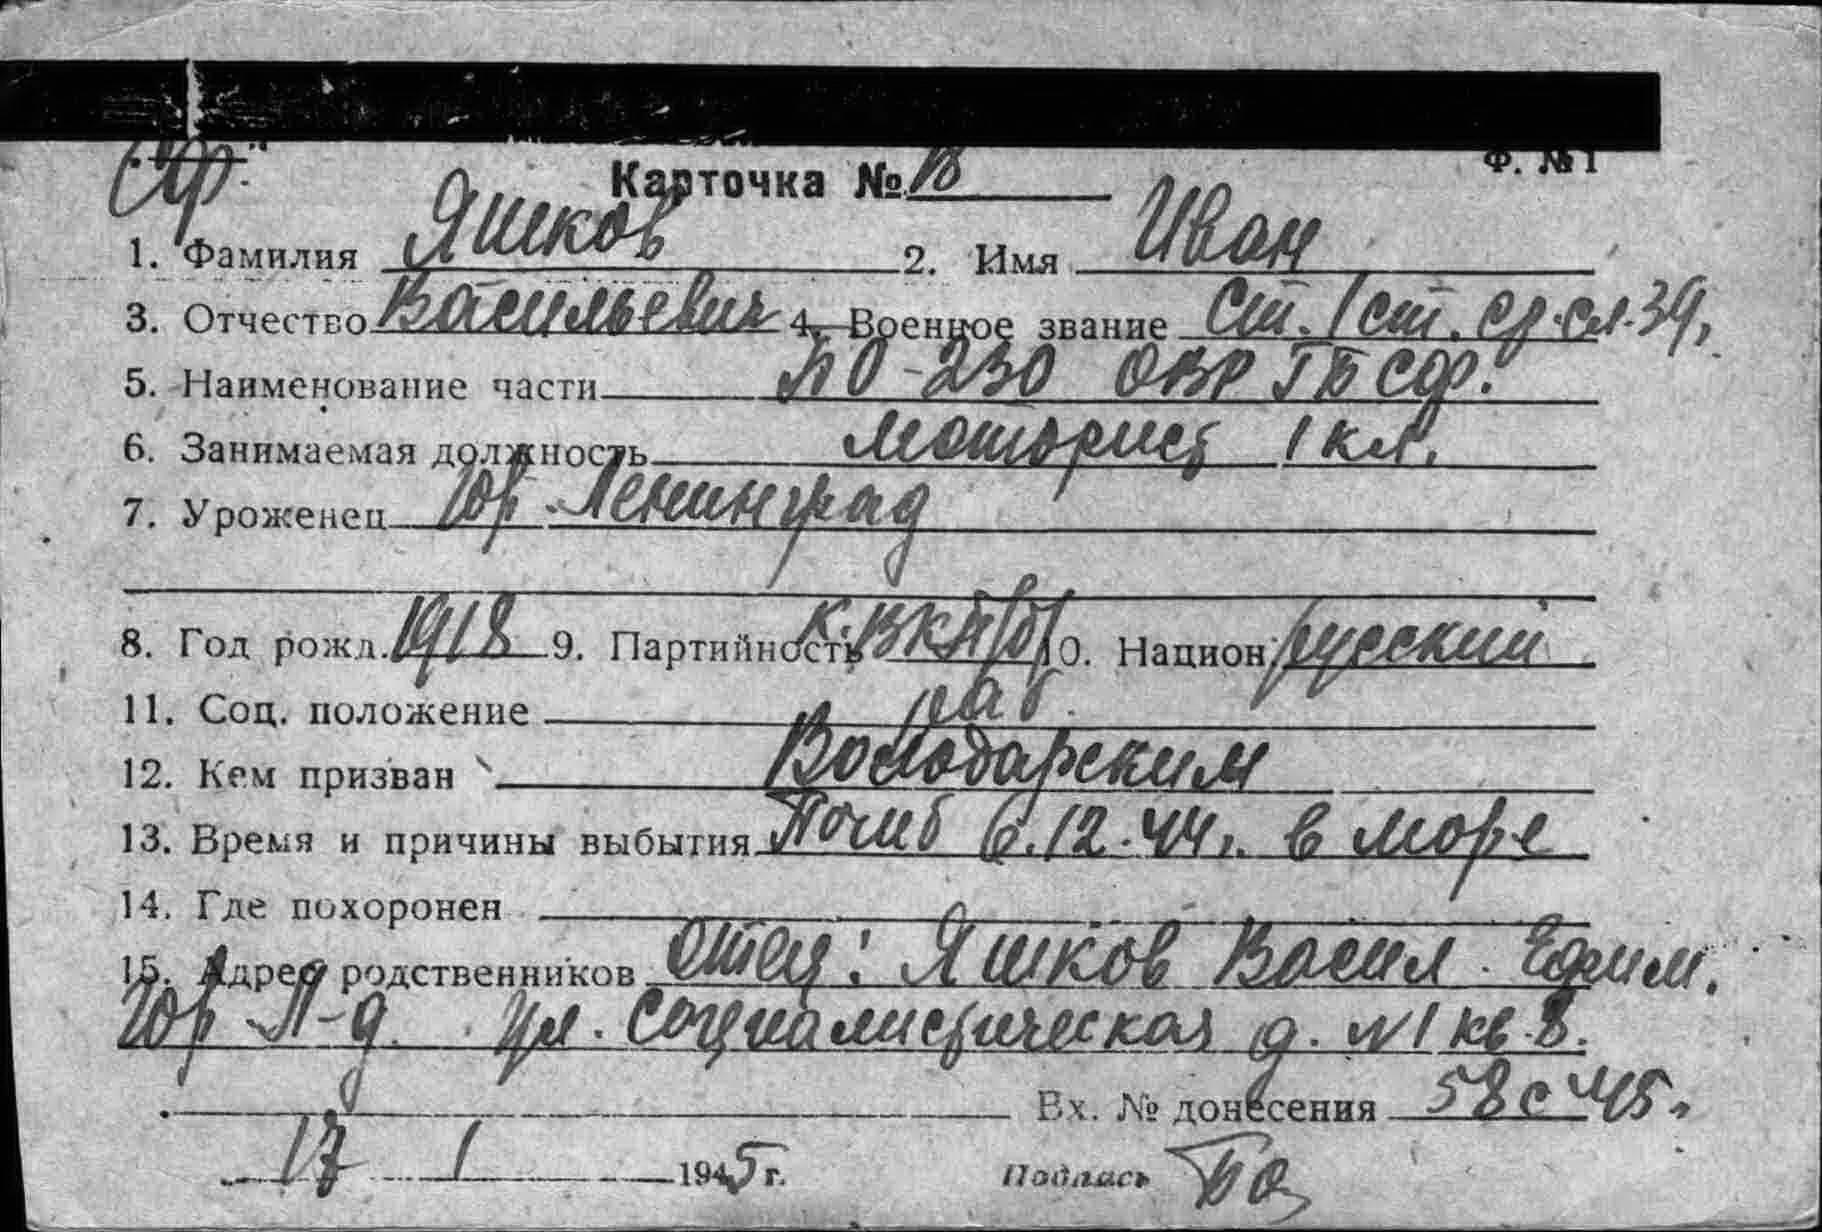 "СФ."
Ф. № 1
Карточка № 18
1. Фамилия Яшков 2. Имя Иван
3. Отчество Васильевич 4. Военное звание Ст. 1 ст. ср. сл. 39г.
5. Наименование части ПО-230 ОВР ГБ СФ.
6. Занимаемая должность моторист 1 кл.
7. Уроженец гор. Ленинград
8. Год рожд. 1918 9. Партийность К. ВКП(б) 10. Национ. русский
11. Соц. положение раб.
12. Кем призван Володарским
13. Время и причины выбытия Погиб 6.12.44г. в море
14. Где похоронен
15. Адрес родственников отец: Яшков Васил. Ефим.
гор Л-д. ул. Социалистическая д. N 1 кв. 8.
Вх. № донесения 58с 45г.
17 1 1945 г. Подпись